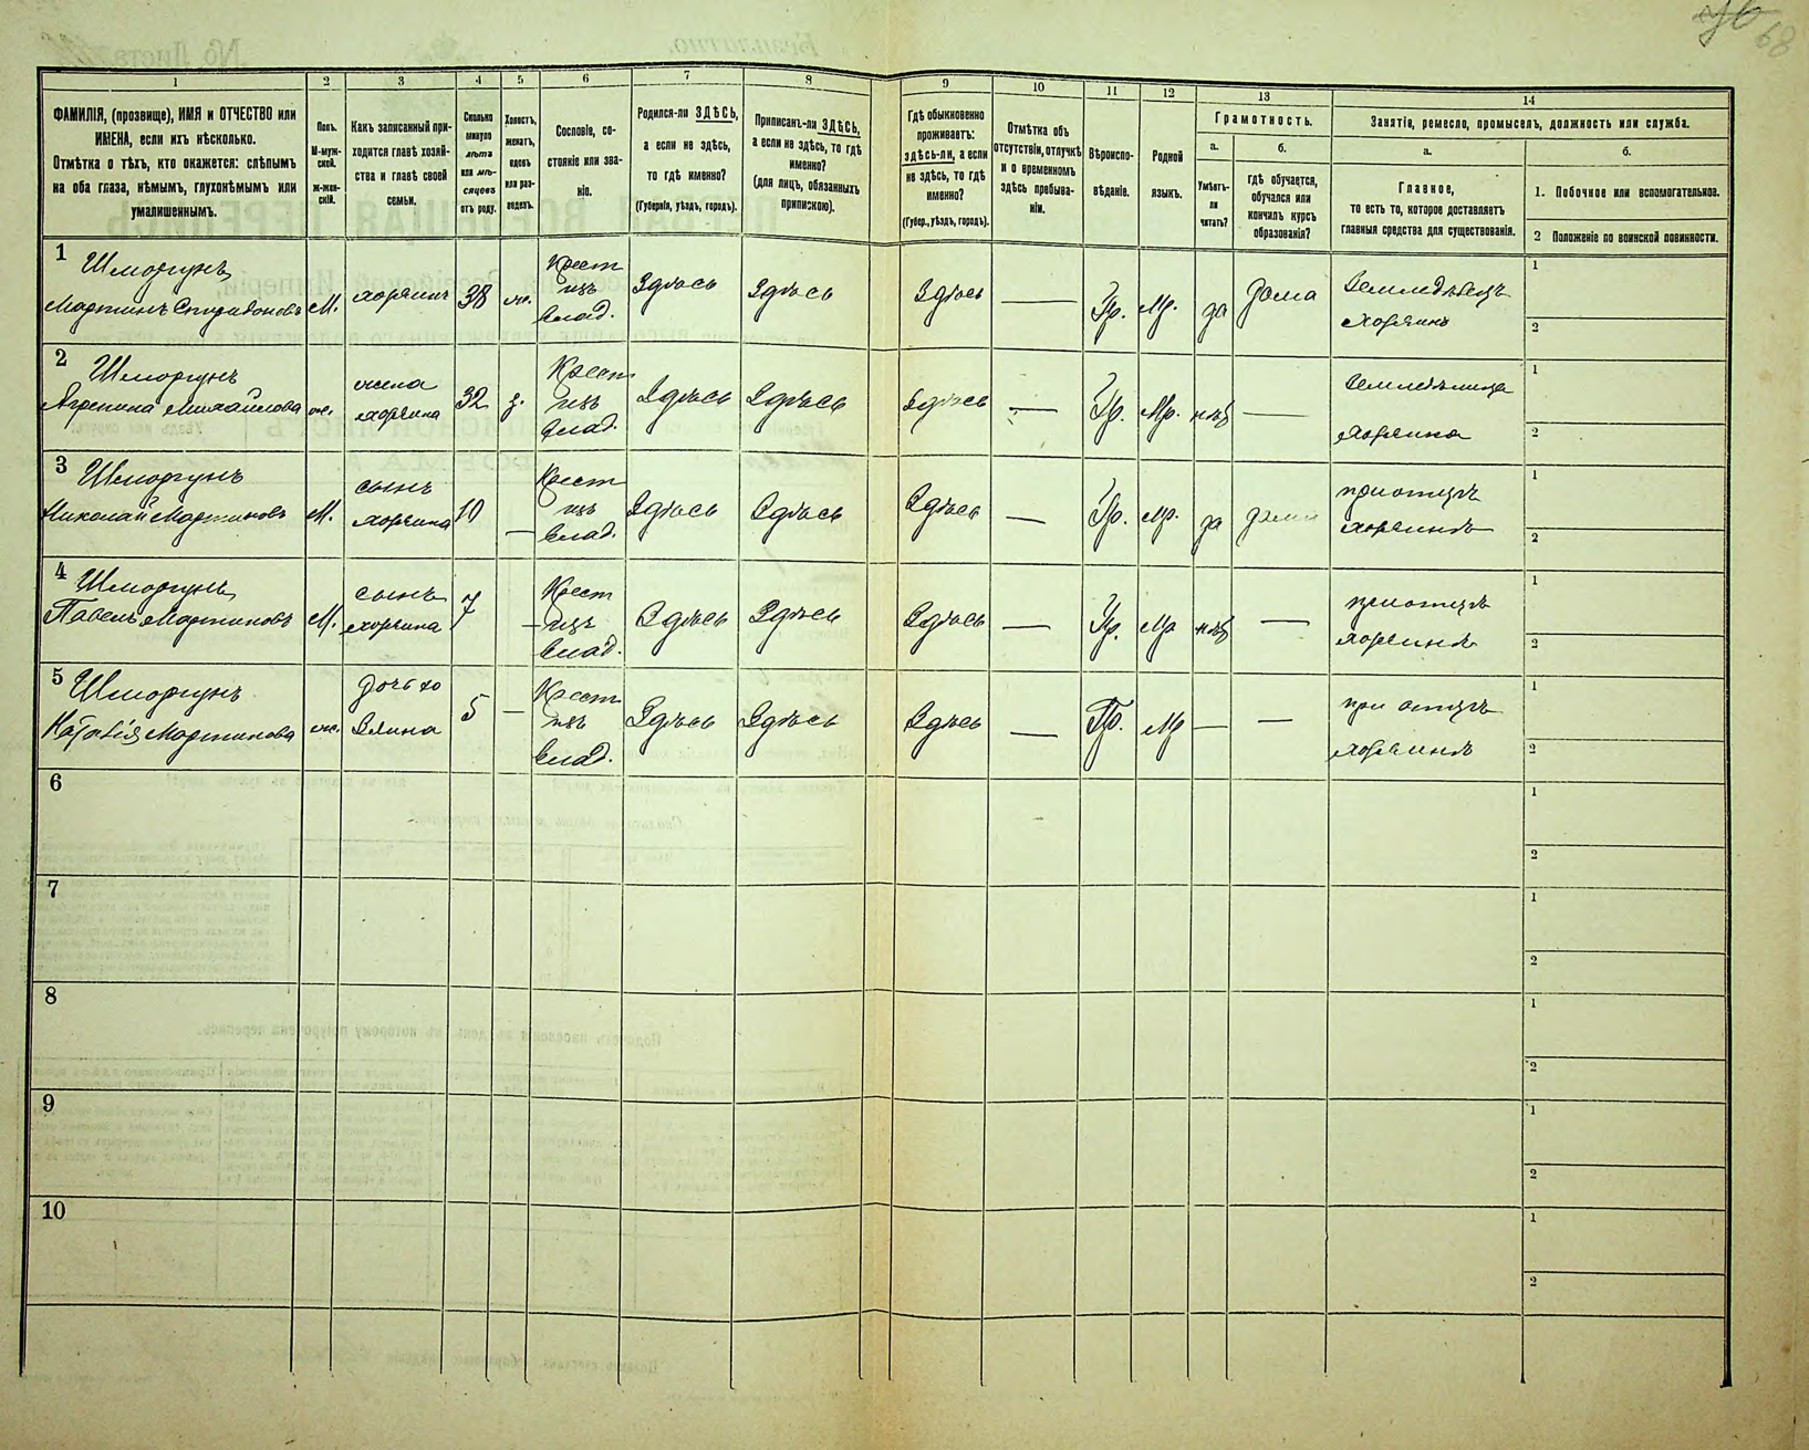 68
1 2 3 4 5 6 7 8 9 10 11 12 13 14
ФАМИЛІЯ, (прозвище), ИМЯ и ОТЧЕСТВО или
ИМЕНА, если ихъ нѣсколько.
Отмѣтка о тѣхъ, кто окажется: слѣпымъ
на оба глаза, нѣмымъ, глухонѣмымъ или
умалишеннымъ.
Полъ.
М-муж-
ской.
Ж-жен-
скій.
Какъ записанный при-
ходится главѣ хозяй-
ства и главѣ своей
семьи.
Сколько
минуло
лѣтъ
или мѣ-
сяцевъ
отъ роду.
Холостъ,
женатъ,
вдовъ
или раз-
веденъ.
Сословіе, со-
стояніе или зва-
ніе.
Родился-ли ЗДѢСЬ,
а если не здѣсь,
то гдѣ именно?
(Губернія, уѣздъ, городъ).
Приписанъ-ли ЗДѢСЬ,
а если не здѣсь, то гдѣ
именно?
(для лицъ, обязанныхъ
припискою).
Гдѣ обыкновенно
проживаетъ:
здѣсь-ли, а если
не здѣсь, то гдѣ
именно?
(Губер., уѣздъ, городъ).
Отмѣтка объ
отсутствіи, отлучкѣ
и о временномъ
здѣсь пребыва-
ніи.
Вѣроиспо-
вѣданіе.
Родной
языкъ.
Грамотность.
а.
Умѣетъ-
ли
читать?
б.
гдѣ обучается,
обучался или
кончилъ курсъ
образованія?
Занятіе, ремесло, промыселъ, должность или служба.
а.
Главное,
то есть то, которое доставляетъ
главныя средства для существованія.
б.
1. Побочное или вспомогательное.
2 Положеніе по воинской повинности.
1 Шморгунъ
Мартинъ Спиридоновъ М. хозяинъ 38 ж. Крест изъ влад. Здѣсь Здѣсь Здѣсь — Пр. Мр. да Дома Земледѣлецъ хозяинъ 1 2
2 Шморгунъ
Агрепина Михайлова ж. жена хозяина 32 з. Крест изъ влад. Здѣсь Здѣсь Здѣсь — Пр. Мр. нѣт — хозяина 1 2
3 Шморгунъ
Николай Мартиновъ М. сынъ хозяина 10 — Крест изъ влад. Здѣсь Здѣсь Здѣсь — Пр. Мр. да дома при отцѣ хозяинѣ 1 2
4 Шморгунъ
Павелъ Мартиновъ М. сынъ хозяина 7 — Крест изъ влад. Здѣсь Здѣсь Здѣсь — Пр. Мр нѣт — при отцѣ хозяинѣ 1 2
5 Шморгунъ
Наталія Мартинова ж. дочь хо зяина 5 — Крест изъ влад. Здѣсь Здѣсь Здѣсь — Пр. Мр — — при отцѣ хозяинѣ 1 2
6 1 2
7 1 2
8 1 2
9 1 2
10 1 2